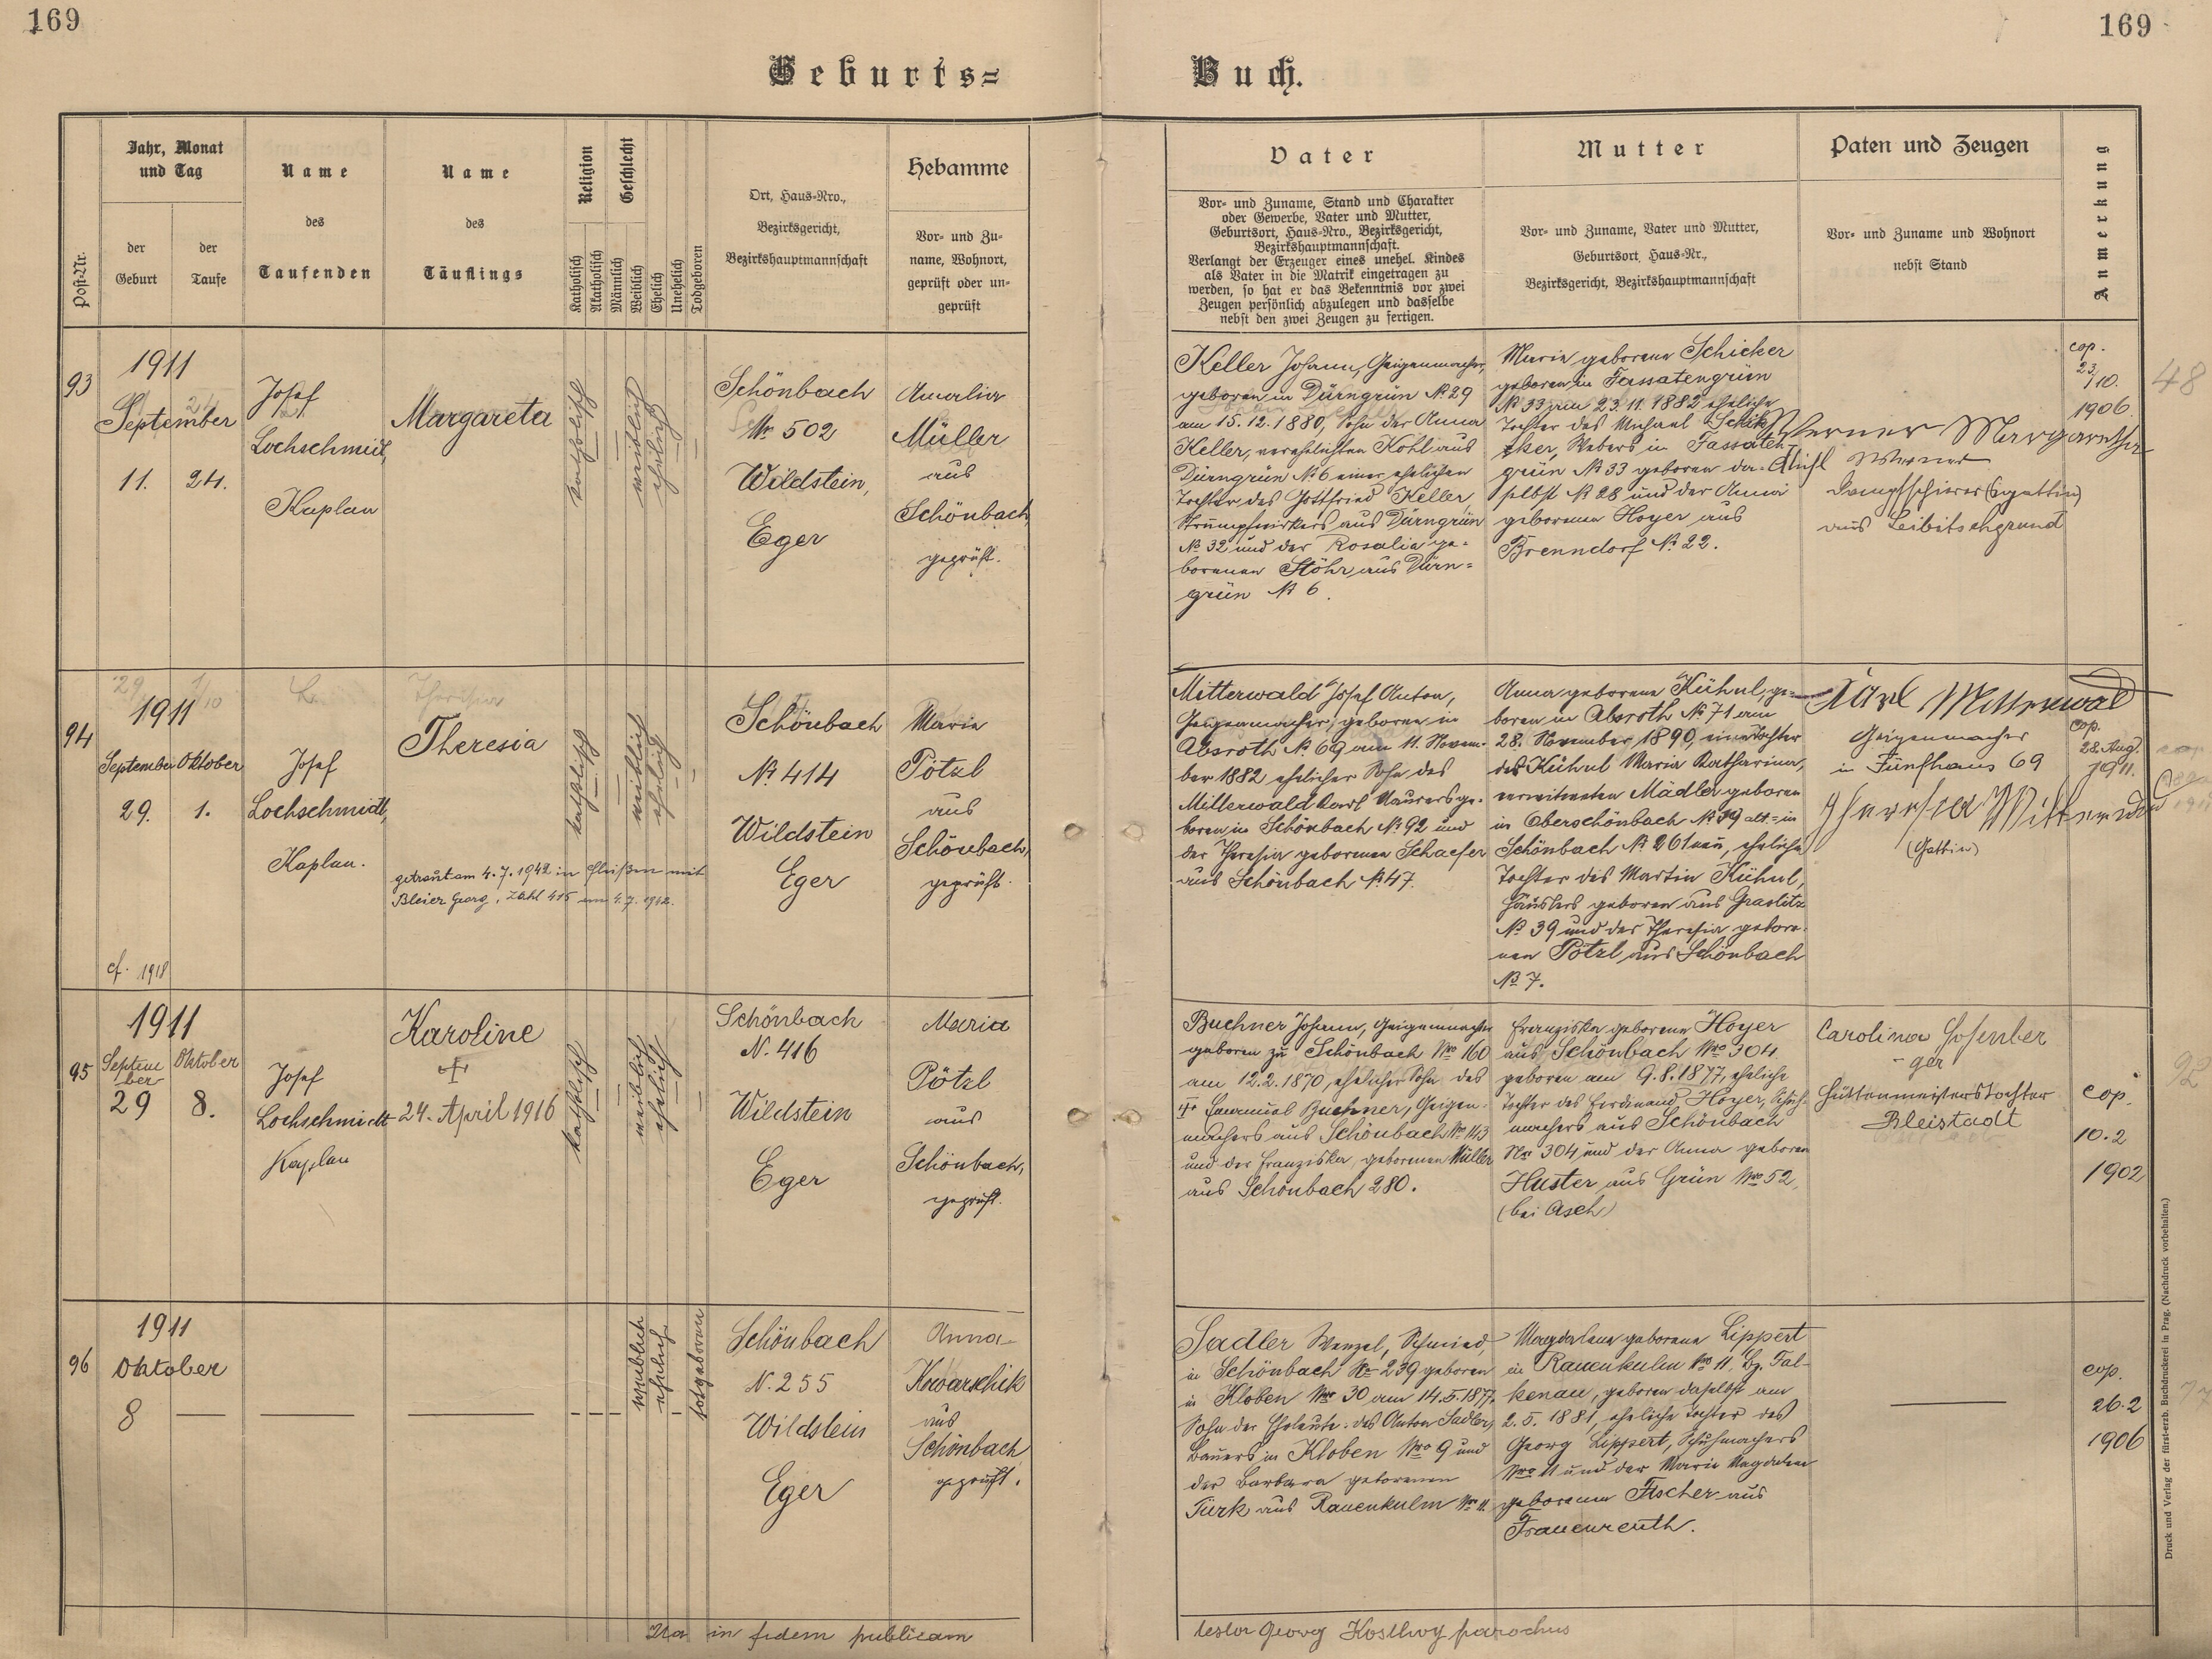 169
169
Geburts=
Buch.
Post-Nr.
Jahr, Monat
und Tag
der
Geburt
der
Taufe
Name
des
Taufenden
Name
des
Täuflings
Religion
Katholisch
Akatholisch
Geschlecht
Männlich
Weiblich
Ehelich
Unehelich
Todgeboren
Ort, Haus-Nro.,
Bezirksgericht,
Bezirkshauptmannschaft
Hebamme
Vor- und Zu-
name, Wohnort,
geprüft oder un-
geprüft
Vater
Vor- und Zuname, Stand und Charakter
oder Gewerbe, Vater und Mutter,
Geburtsort, Haus-Nro., Bezirksgericht,
Bezirkshauptmannschaft.
Verlangt der Erzeuger eines unehel. Kindes
als Vater in die Matrik eingetragen zu
werden, so hat er das Bekenntnis vor zwei
Zeugen persönlich abzulegen und dasselbe
nebst den zwei Zeugen zu fertigen.
Mutter
Vor- und Zuname, Vater und Mutter,
Geburtsort, Haus-Nr.,
Bezirksgericht, Bezirkshauptmannschaft
Paten und Zeugen
Vor- und Zuname und Wohnort
nebst Stand
Anmerkung
93
1911
September
11.
24.
Josef
Lochschmidt,
Kaplan
Margareta
katholisch
weiblich
ehelich
Schönbach
Nr. 502
Wildstein,
Eger
Amalia
Müller
aus
Schönbach,
geprüft.
Keller Johann, Geigenmacher,
geboren in Dürngrün № 29
am 15.12.1880, Sohn der Anna
Keller, verehelichten Kohl aus
Dürngrün № 6 einer ehelichen
Tochter des Gottfried Keller
Strumpfwirkers aus Dürngrün
№ 32 und der Rosalia ge-
borenen Stöhr aus Dürn-
grün № 6.
Maria geborene Schicker
geboren in Fassatengrün
№ 33 am 23.11.1882 eheliche
Tochter des Michael Schik
ker, Webers in Fassaten-
grün № 33 geboren da-
selbst № 28 und der Anna
geborenen Hoyer aus
Brenndorf № 22.
Werner Margaretha
Werner
(Gattin)
aus Leibitschgrund
cop.
23/10.
1906.
48
94
1911
September
Oktober
29.
1.
cf. 1918
Josef
Lochschmidt,
Kaplan.
Theresia
Theresia
getraut am 4.7.1942 in Fleißen mit
Bleier Georg, Zahl 415 am 4.7.1942.
katholisch
weiblich
ehelich
Schönbach
№ 414
Wildstein
Eger
Maria
Pötzl
aus
Schönbach,
geprüft.
Mitterwald Josef Anton,
Geigenmacher, geboren in
Absroth № 69 am 11. Novem-
ber 1882 ehelicher Sohn des
Mitterwald Karl Maurers ge-
boren in Schönbach № 92 und
der Theresia geborenen Schaefer
aus Schönbach № 47.
Anna geborene Kühnl, ge-
boren in Absroth № 71 am
28. November 1890, eine Tochter
der Kühnl Maria Katharina,
verwitweten Mädler geboren
in Oberschönbach № 39 alt = in
Schönbach № 261 neu, eheliche
Tochter des Martin Kühnl,
Häuslers geboren aus Graslitz
№ 39 und der Theresia gebore-
nen Pötzl aus Schönbach
№ 7.
Karl Mitterwald
Geigenmacher
in Fünfhaus 69
Theresia Mitterwald
(Gattin)
cop.
28. Aug.
1911.
95
1911
Septem
ber
Oktober
29
8.
Josef
Lochschmidt
Kaplan
Karoline
+
24. April 1916
katholisch
weiblich
ehelich
Schönbach
N. 416
Wildstein
Eger
Maria
Pötzl
aus
Schönbach,
geprüft.
Buchner Johann, Geigenmacher
geboren zu Schönbach Nro 160
am 12.2.1870, ehelicher Sohn des
Buchner, Geigen-
machers aus Schönbach Nro 143
und der Franziska, geborenen Müller
aus Schönbach 280.
Franziska geborene Hoyer
aus Schönbach Nro 304.
geboren am 9.8.1877, eheliche
Tochter des Ferdinand Hoyer, Schuh-
machers aus Schönbach
Nro 304 und der Anna geboren
Huster aus Grün Nro 52,
(bei Asch)
Carolina
ger
Hüttenmeisterstochter
Bleistadt
cop.
10.2
1902
92
96
1911
Oktober
8
weiblich
ehelich
totgeboren
Schönbach
N. 255
Wildstein
Eger
Anna
Kowarschik
aus
Schönbach
geprüft.
Sadler Wenzel, Schmied,
in Schönbach Nr 239 geboren
in Kloben Nro 30 am 14.5.1877.
Sohn der Eheleute: des Anton Sadler,
Bauers in Kloben Nro 9 und
der Barbara geborenen
Türk aus Rauenkulm Nro 11.
Magdalena geborene Lippert
in Rauenkulm Nro 11, Bz. Fal-
kenau, geboren daselbst am
2.5.1881, eheliche Tochter des
Georg Lippert, Schuhmachers
Nro 11 und der Maria Magdalena
geborenen Fischer aus
Frauenreuth.
cop.
26.2
1906
77
Ita in fidem publicam
testor Georg Kosthoy parochus
Druck und Verlag der fürst-erzb. Buchdruckerei in Prag. (Nachdruck vorbehalten.)